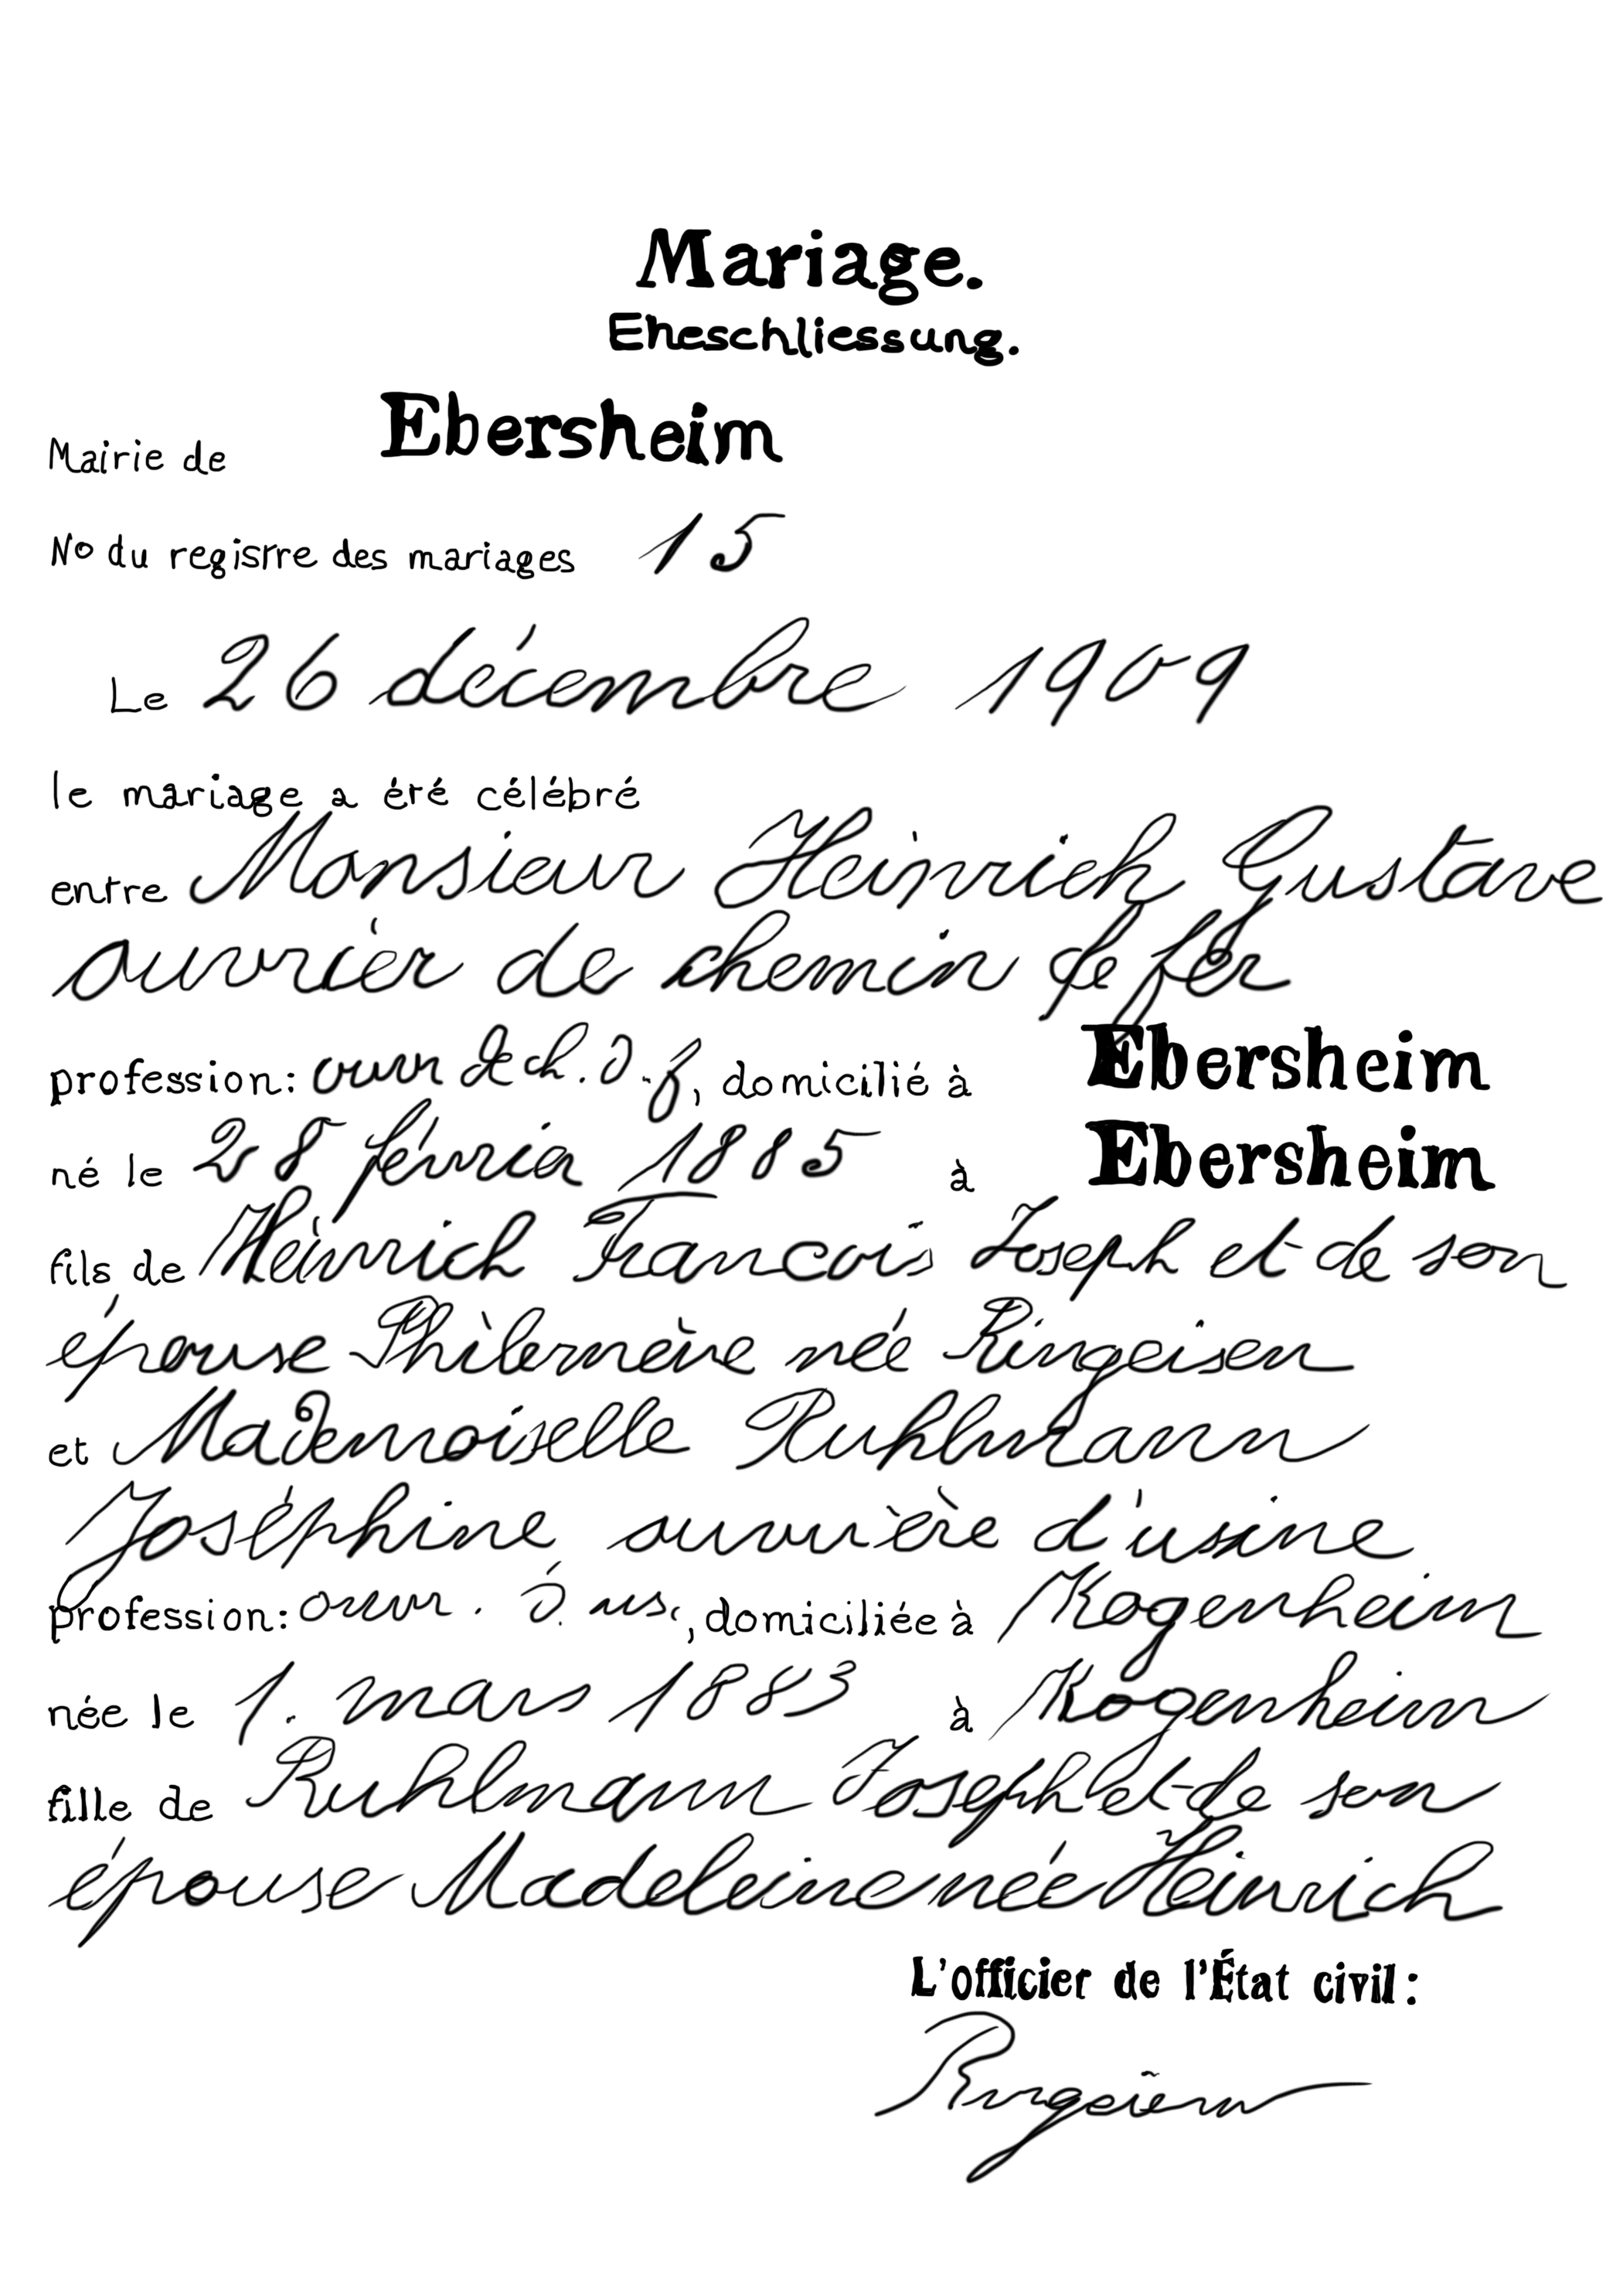 Mariage.
Eheschliessung.
Mairie de Ebersheim
No du registre des mariages 15
Le 26 décembre 1909
le mariage a été célébré
entre Monsieur Heinrich Gustave
ouvrier de chemin de fer
profession: ouvr de ch. d. f., domicilié à Ebersheim
né le 28 février 1885 à Ebersheim
fils de Heinrich Francois Joseph et de son
épouse née Ringeisen
et Mademoiselle Ruhlmann
Joséphine ouvrière d'usine
profession: ouvr. d. us., domiciliée à Kogenheim
née le 1. mars 1883 à Kogenheim
fille de Ruhlmann Joseph et de son
épouse Madeleine née Heinrich
L'officier de l'État civil:
Ringeisen